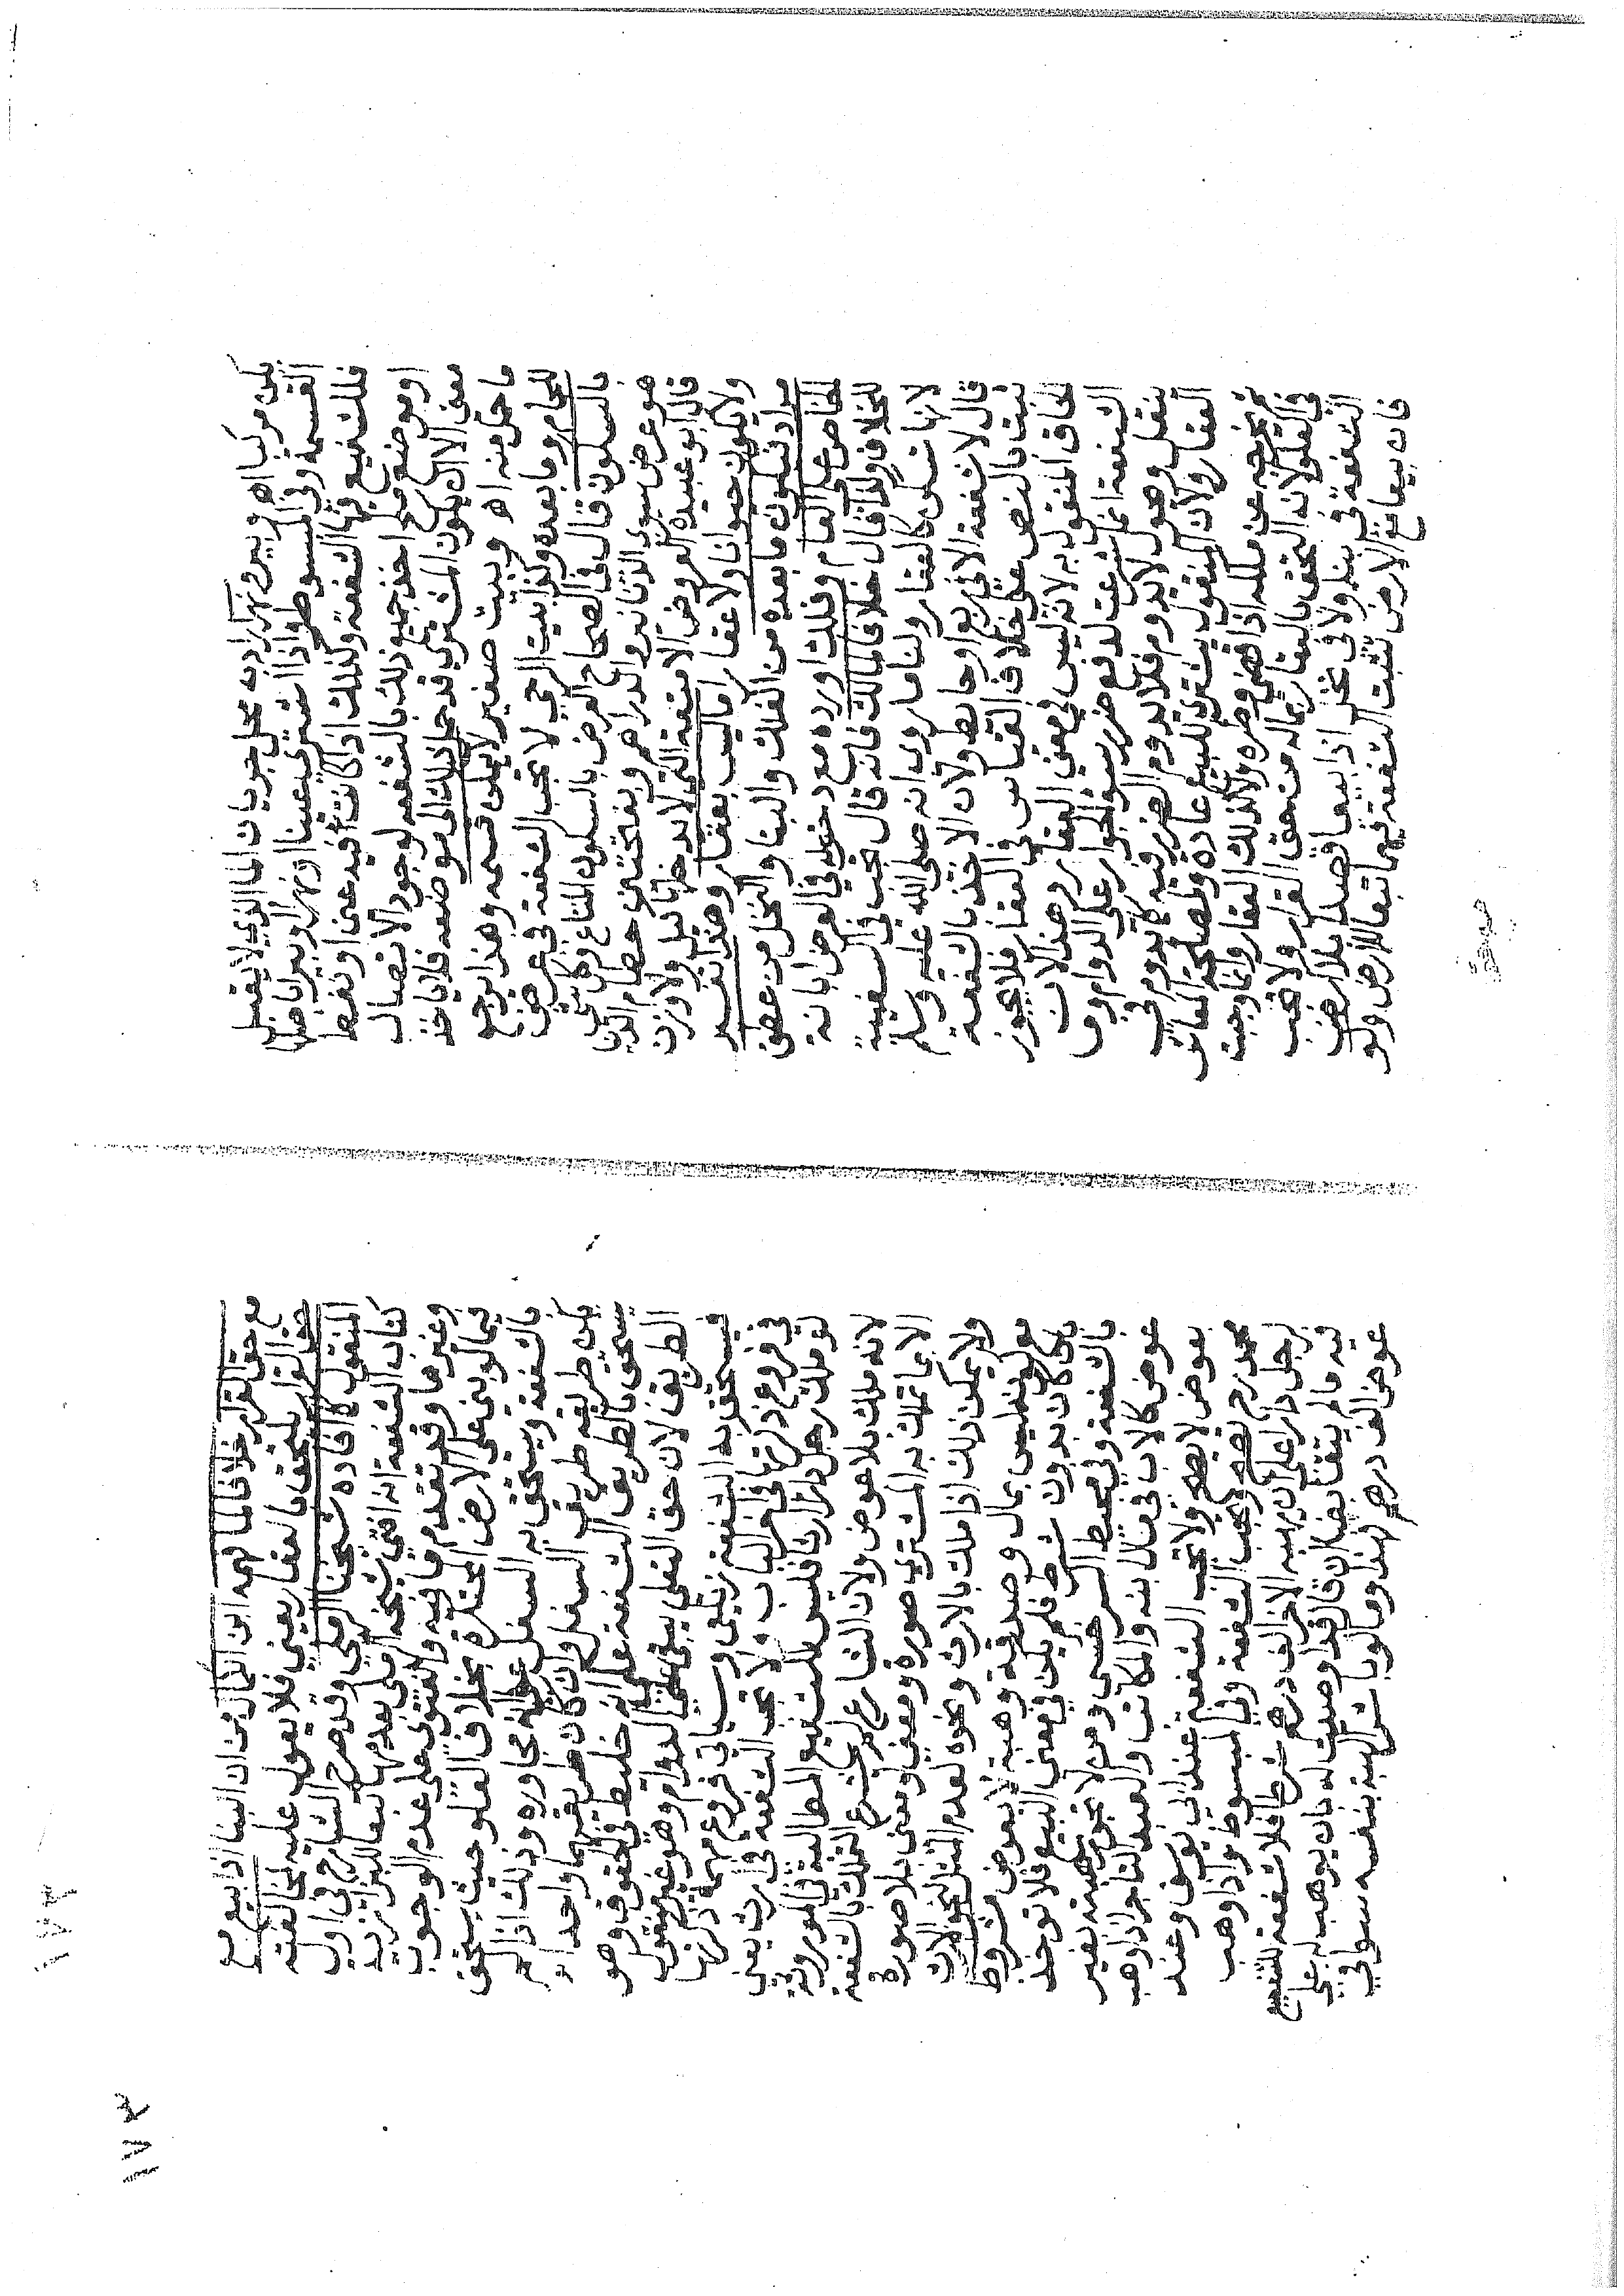 يكن مركبا اهر وبير ونهر اراد به محل جريان الما الذي لا يقبل
القسمة وفي المبسوط واذا اشترى عينا او نهرا او بيرا باصلها
فللشفيع فيها الشفعة وكذلك اذا كانت فيه عين او نفط
او موضع ملح اخذ جميع ذلك بالشفعه لوجود الاتصال
معنى الا ان يكون المشتري قد حمل ذلك الى موضعه فلا ياخذ
ما حمل منه اه وبيت صغير لا يمكن قسمه وهذا يرجع
للحمام وما بعده وكذا بيت الرحي لا تجب الشفعة في عرض
بالسكون قال في الصحاح العرض بالسكون المتاع وكل شي
هو عرض سوى الدنانير والدراهم وبفتحتين حطام الدنيا
قال ابو عبيده العروض الامتعة التي لا يدخلها كيل ولا وزن
ولا يكون حيوانا ولا عقارا ما ليس بعقار وهذا تفسير
مراد ليكون ما بعده من الفلك والبنا والنخل من عطف
الخاص على العام وفلك اورده مع دخوله في العرض ابانة
للخلاف ولذا قال خلافا لمالك فانه قال تجب في السفينة
لانها تسكن كالعقار ولنا ما روى انه صلى الله عليه وسلم
قال لا شفعة الا في ربع او حايط ولان الاخذ بالشفعة
ثبت بالنص على خلاف القياس في العقار فلا يجوز
الحاق المنقول به لانه ليس في معنى العقار وهذا لان
الشفعة انما شرعت لدفع ضرر سوء الجوار على الدوام وما
ينقل ويحول لا يدوم فلا يدوم الضرر فيه كما يدوم في
العقار ولان المنقول يشترى للبيع عادة ولمصلحة المعاش
ثم يخرجه عن ملكه اذا قضى وطره ولا كذلك العقار وانما وجبت
في العلو لانه التحق بالعقار بماله من حق القرار ولا تجب
الشفعة في بنا ولا في نخل اذا بيعا قصدا بلا ارض
فان بيعا مع الارض تثبت الشفعة فيهما تبعا للارض ولو
مع حق القرار خلافا لما فهمه ابن الكمال من ان البنا اذا بيع مع
حق القرار يلتحق بالعقار يعني فلا يعول عليه لمخالفته
المنقول كما افاده شيخنا الرملي وقد صرح الشارح في اول
كتاب الشفعة انه افتى شيخه الرملي بعدمها تبعا للبزازية
وغيرها وقد تقدم ما فيه والفتوى على عدم الوجوب
فيما لو بنى على الارض المحتكرة بخلاف العلو حيث يستحق
بالشفعة ويستحق به السفل على انه مجاوره وذلك اذا لم
يكن طريقه طريق السفل وان كان طريقهما واحدا
يستحق بالطريق الشفعة على انه خليط في الحقوق وهو
الطريق لان حق التعلي يبقى على الدوام وهو غير منقول
فيستحق به الشفعة زيلعي وسياتي فروع مهمة ذكرها
في فروع ذكرها في اخر الباب ولا تجب الشفعة في ارث يعني
لو ملك رجل دارا ارثا فليس للشفيع المطالبة في الموروثة
لانه ملك بلا عوض ولان الشارع لم يشرع التملك بالشفعة
الا بما تملك به المشتري صورة ومعنى او معنى بلا صورة
ولا يمكن ذلك اذا ملك بالارث ونحوه لعدم
وصدقة وهبة لا بعوض مشروط
كان بدون شرط فلم يكن في معنى البيع فلا توخذ
بالشفعة وفي محيط السرخسي ومن لا تجوز هبته بغير
عوض كالاب في مال ابنه والمكاتب والعبد التاجر اذا وهب
بعوض لا يصح ولا تجب الشفعة عند ابي يوسف وعند
محمد رح تصح وتجب الشفعة وفي المبسوط واذا وهب
لرجل دارا على ان يهبه الاخر الف درهم شرطا فلا شفعة للشفيع
فيه ما لم يتقابضا وان قال قد اوصيت له بان يوهب له على
عوض الف درهم فهذا وما لو باشر الهبة بنفسه سوا في
١٧٢
١٧٢